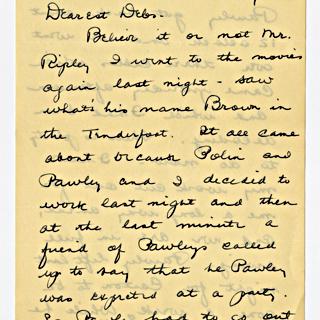 Dearest Debs -
Believe it or not Mr.
Ripley I went to the movies
again last night - saw
what's his name Brown in
the Tenderfoot. It all came
about because Polin and
Pawley and I decided to
work last night and then
at the last minute a
friend of Pawleys called
up to say that he Pawley
was expected at a party.
So had to go out